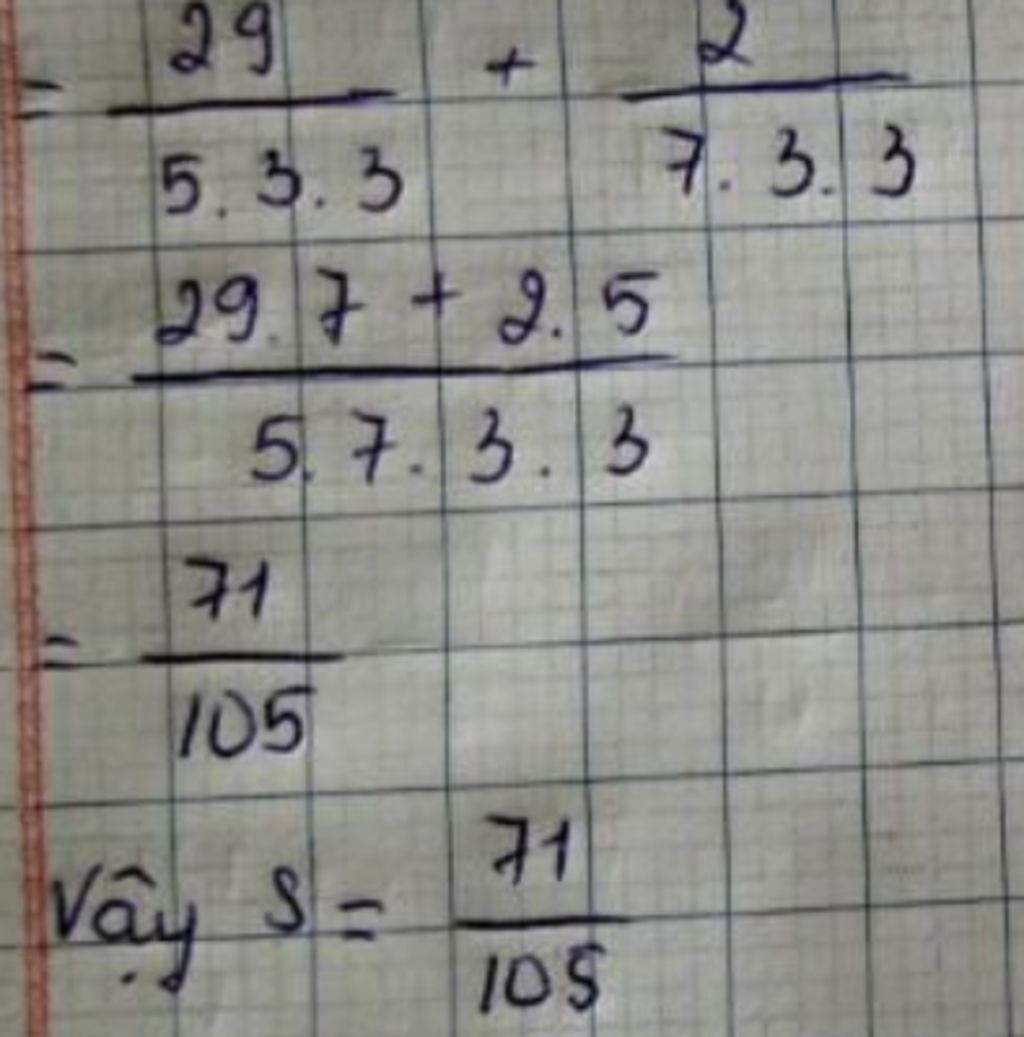 = 29/(5.3.3) + 2/(7.3.3)
= (29.7 + 2.5)/(5.7.3.3)
= 71/105
Vậy S = 71/105